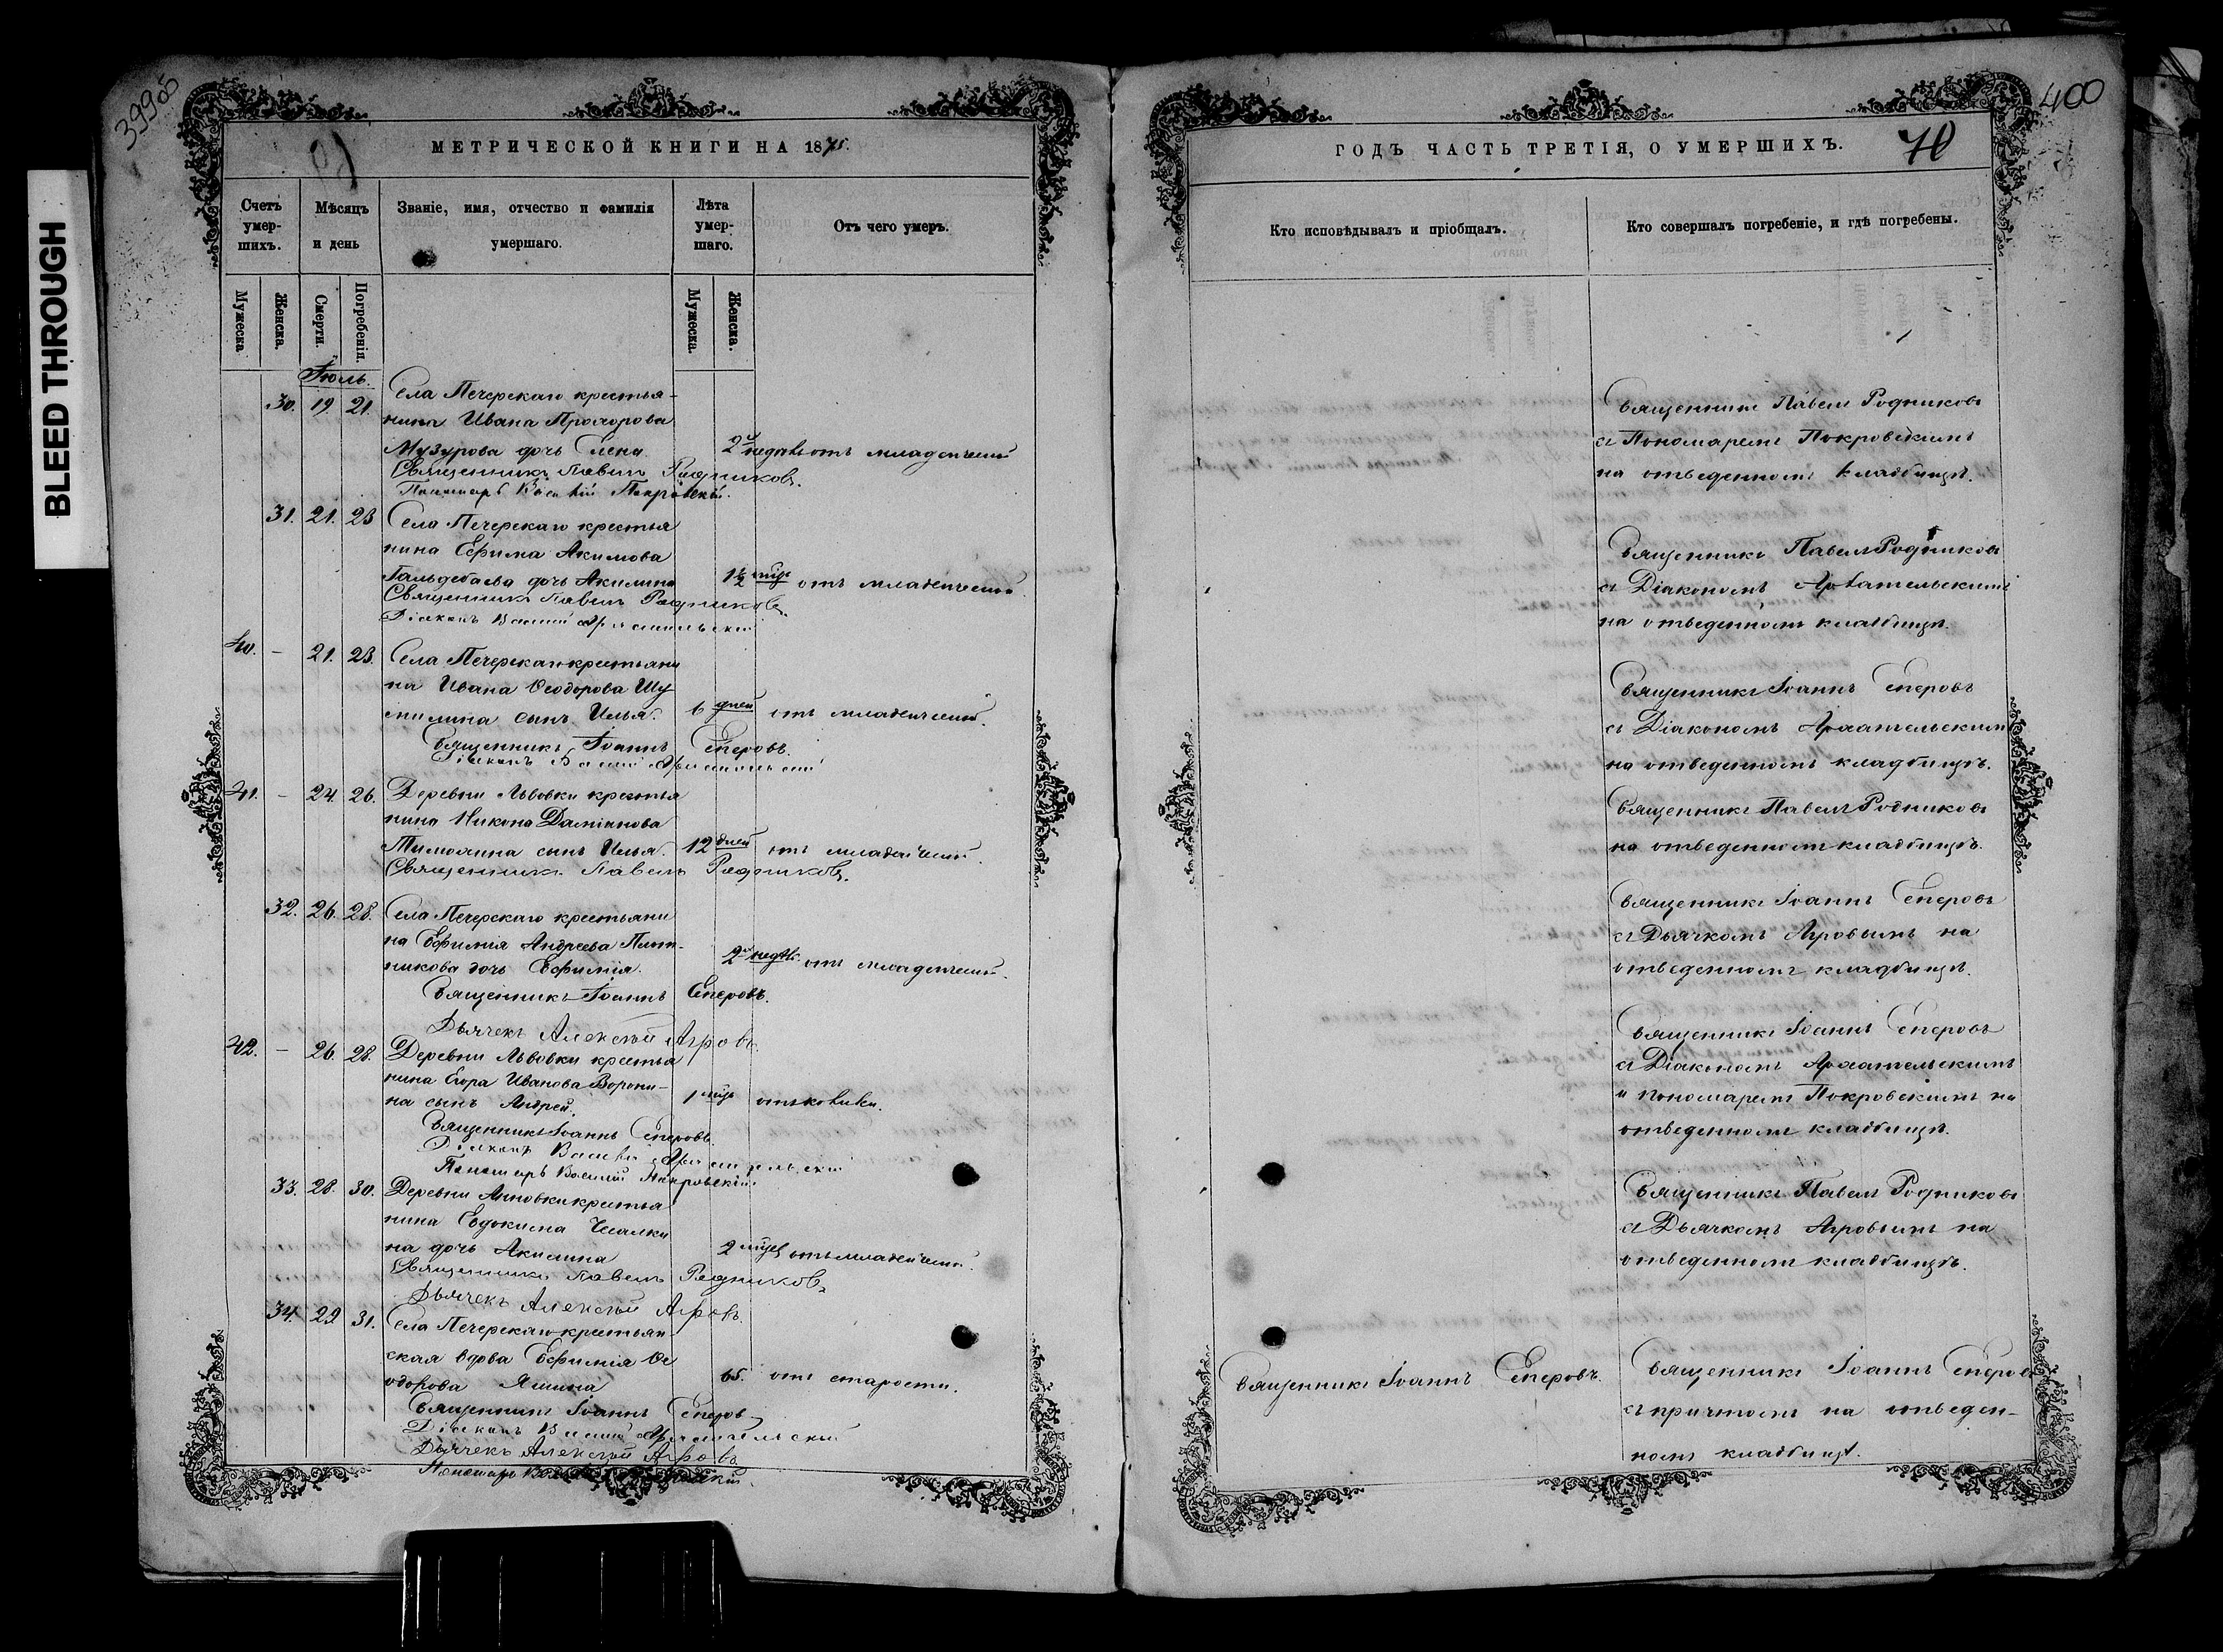 BLEED THROUGH
399об
400
МЕТРИЧЕСКОЙ КНИГИ НА 1875.
ГОДЪ ЧАСТЬ ТРЕТІЯ, О УМЕРШИХЪ.
70
Счетъ умер-шихъ.
Мѣсяцъ и день
Званіе, имя, отчество и фамилія умершаго.
Лѣта умер-шаго.
Отъ чего умеръ.
Кто исповѣдывалъ и пріобщалъ.
Кто совершалъ погребеніе, и гдѣ погребены.
Мужеска.
Женска.
Смерти.
Погребенія.
Мужеска.
Женска.
Іюль.
30. 19 21. Села Печерскаго крестья-
нина Ивана Прохорова
Музурова дочь Елена 2 недѣль отъ младенческой
Священникъ Павелъ Родниковъ.
Пономарь Василій Покровскій.
Священникъ Павелъ Родниковъ
съ Пономаремъ Покровскимъ
на отведенномъ кладбищѣ.
31. 21. 23 Села Печерскаго крестья
нина Ефима Акимова
дочь Акилина 1½ мѣс отъ младенческой
Священникъ Павелъ Родниковъ.
Діаконъ Василій Архангельскій
Священникъ Павелъ Родниковъ
съ Діакономъ Архангельскимъ
на отведенномъ кладбищѣ.
40. – 21. 23. Села Печерскаго крестьяни
на Ивана Ѳеодорова Шу
милина сынъ Илья. 6 дней отъ младенческой.
Священникъ Іоаннъ Сперовъ.
Діаконъ Василій Архангельскій
Священникъ Іоаннъ Сперовъ
съ Діакономъ Архангельскимъ
на отведенномъ кладбищѣ.
41. – 24. 26. Деревни Львовки крестья
нина Никона Даміанова
сынъ Илья. 12 дней отъ младенческой.
Священникъ Павелъ Родниковъ.
Священникъ Павелъ Родниковъ
на отведенномъ кладбищѣ.
32. 26. 28. Села Печерскаго крестьяни
на Ефимія Андреева Плот-
никова дочь Евфимія. 2 недѣль отъ младенческой.
Священникъ Іоаннъ Сперовъ.
Дьячекъ Алексѣй Агровъ.
Священникъ Іоаннъ Сперовъ
съ Дьячкомъ Агровымъ на
отведенномъ кладбищѣ.
42. – 26. 28. Деревни Львовки крестья
нина Егора Иванова Ворони-
на сынъ Андрей. 1 мѣс отъ
Священникъ Іоаннъ Сперовъ.
Діаконъ Василій Архангельскій
Пономарь Василій Покровскій.
Священникъ Іоаннъ Сперовъ
съ Діакономъ Архангельскимъ
и пономаремъ Покровскимъ на
отведенномъ кладбищѣ.
33. 28. 30. Деревни Анновки крестья
нина Евдокима Чекалки
на дочь Акилина 2 мѣсе отъ младенческой.
Священникъ Павелъ Родниковъ.
Дьячекъ Алексѣй Агровъ.
Священникъ Павелъ Родниковъ
съ Дьячкомъ Агровымъ на
отведенномъ кладбищѣ.
34. 29. 31. Села Печерскаго крестьян
ская вдова Евфимія Ѳе
одорова Яшина 65. отъ старости.
Священникъ Іоаннъ Сперовъ
Діаконъ Василій Архангельскій
Дьячекъ Алексѣй Агровъ
Пономарь
Священникъ Іоаннъ Сперовъ.
Священникъ Іоаннъ Сперовъ
съ причтомъ на отведен-
номъ кладбищѣ.